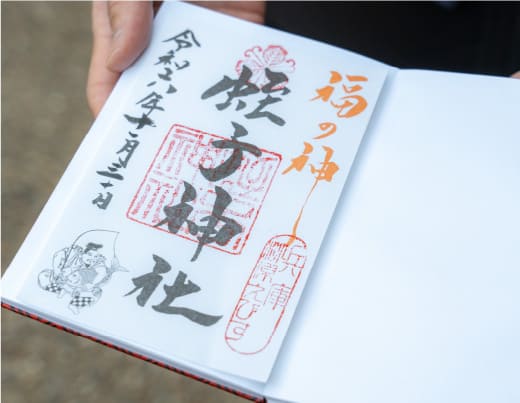 福の神
兵庫
柳原えびす
蛭子神社
令和六年十一月三十日